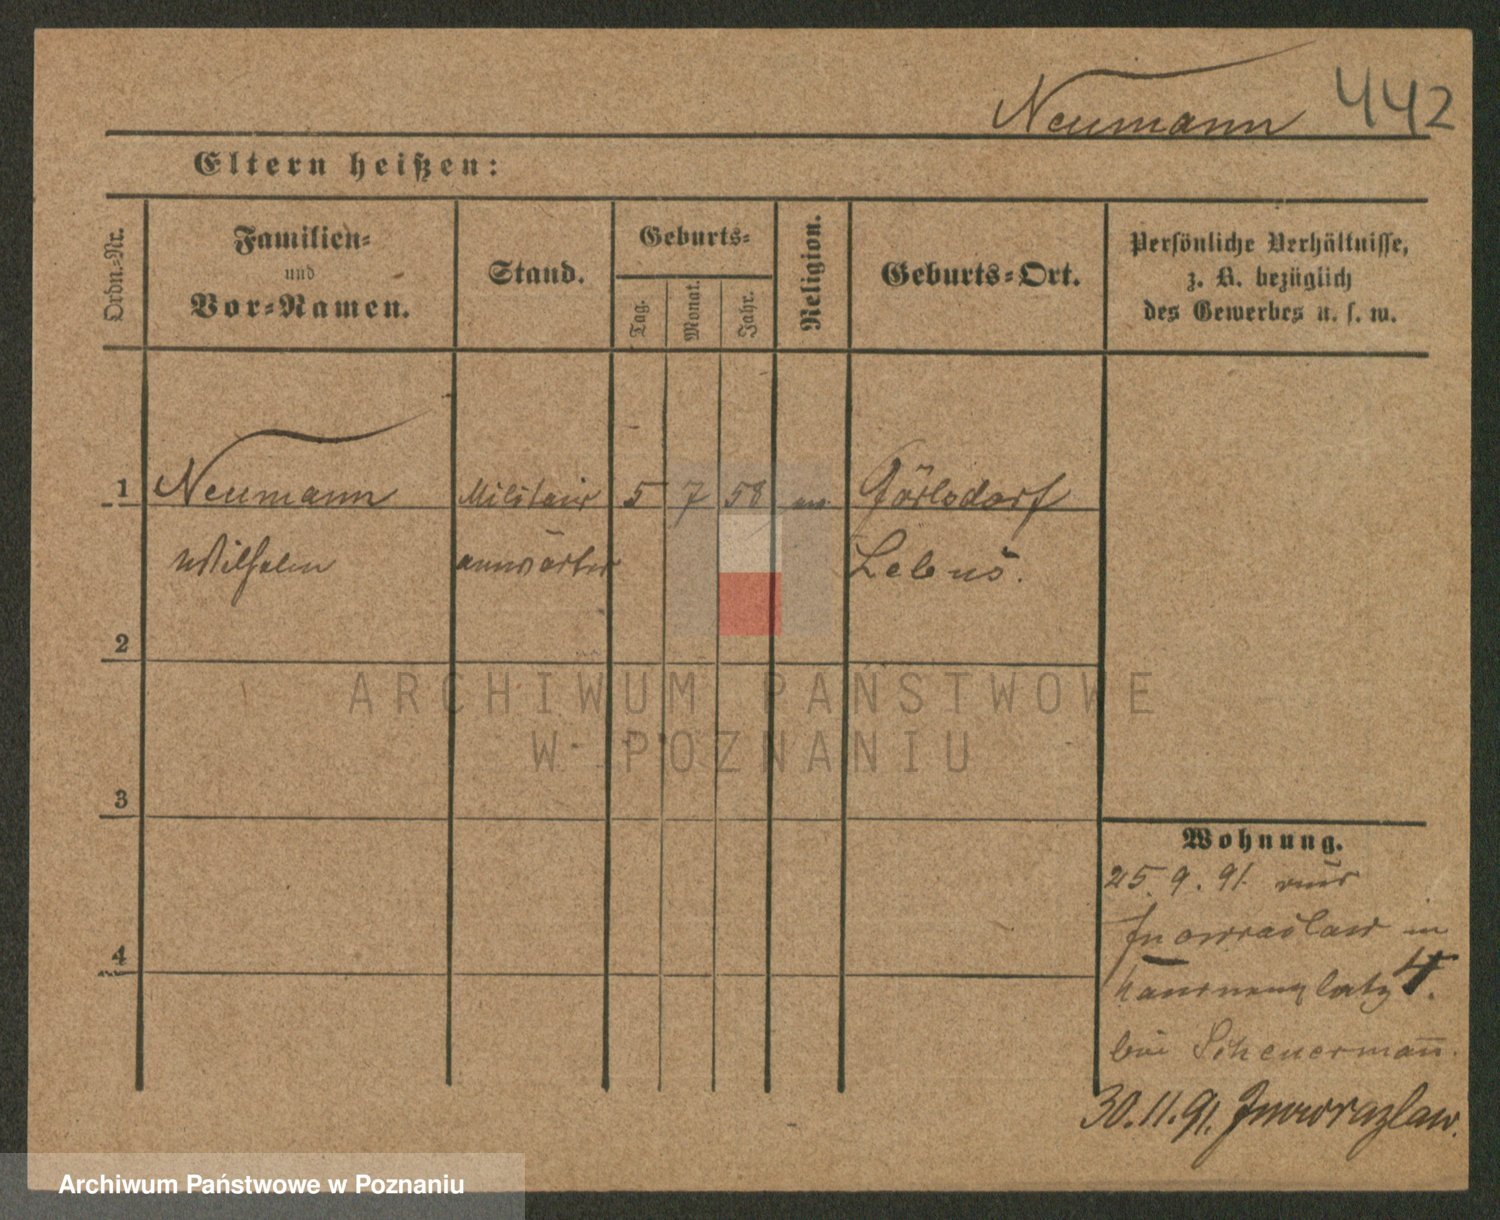 Neumann 442
Eltern heißen:
Ordn.-Nr.
Familien-
und
Vor-Namen.
Stand.
Geburts-
Tag.
Monat.
Jahr.
Religion.
Geburts-Ort.
Persönliche Verhältnisse,
z. B. bezüglich
des Gewerbes u. s. w.
1 Neumann Militair 5 7 58 ev. Görlsdorf
Wilhelm anwärter Lebus.
2
3
4
ARCHIWUM PAŃSTWOWE
W POZNANIU
Wohnung.
25. 9. 91. aus
Inowraslaw in
4.
bei Scheuermann.
30.11.91. Inowrazlaw.
Archiwum Państwowe w Poznaniu